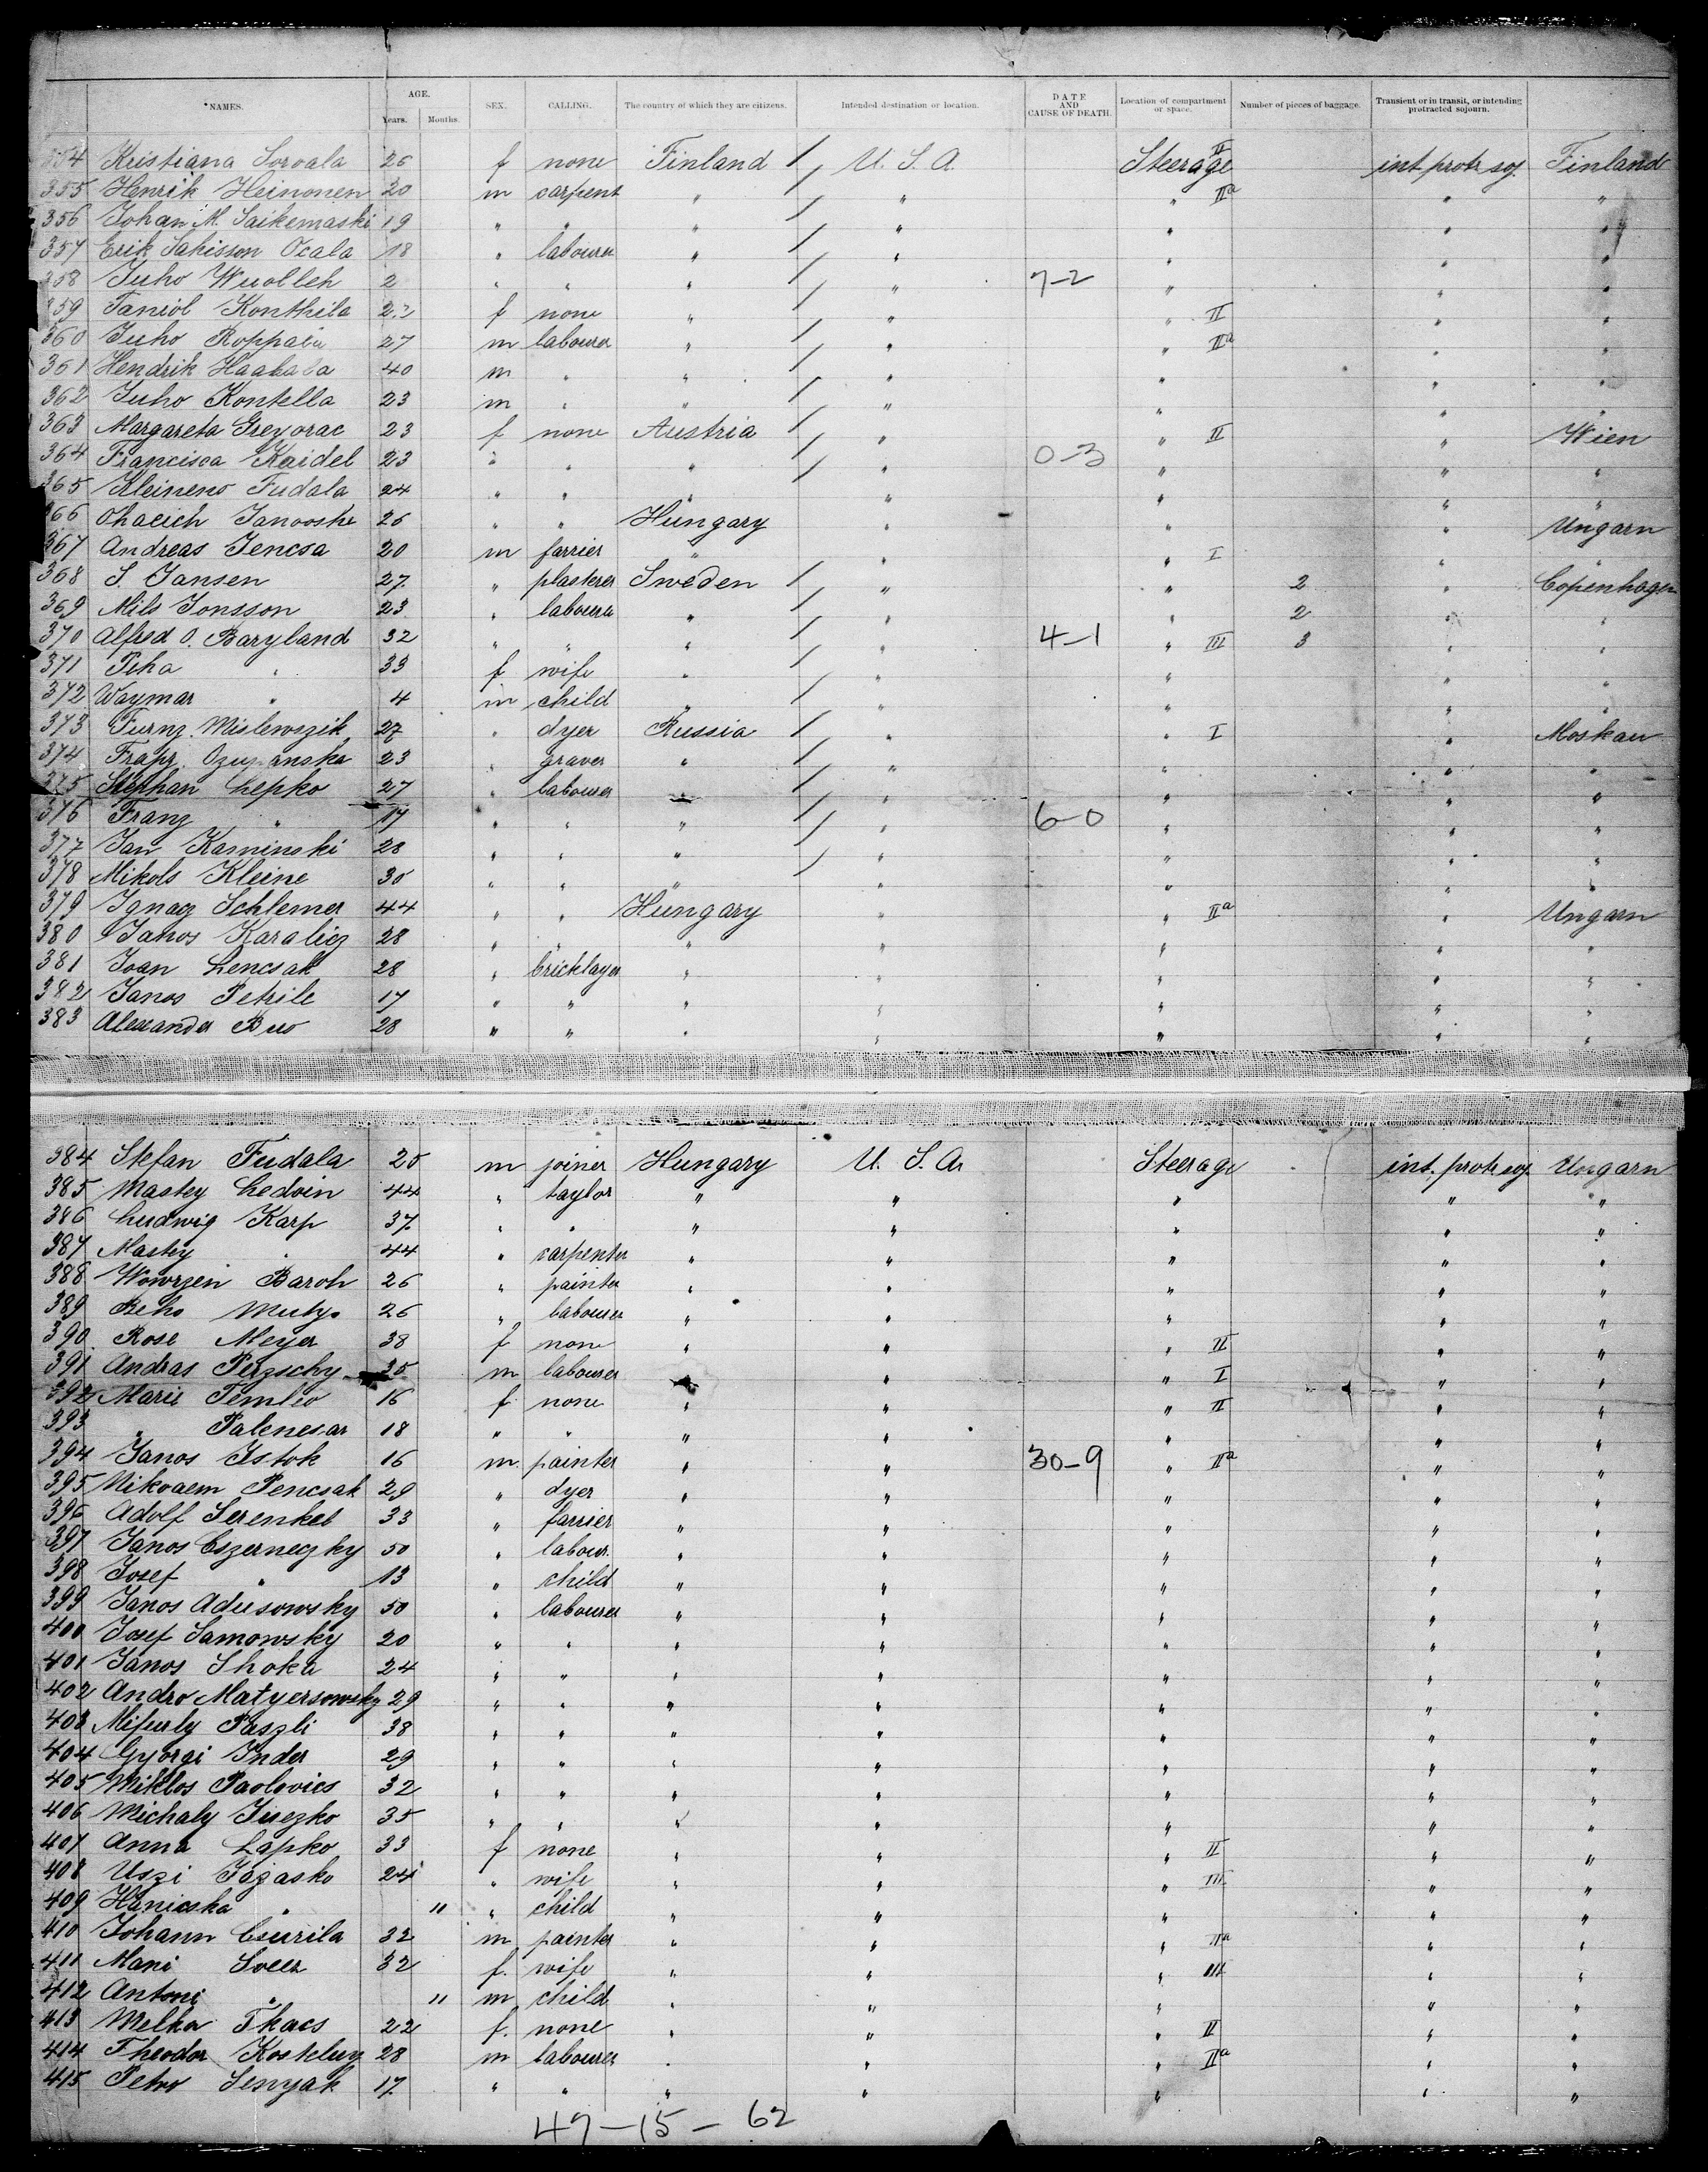 NAMES. AGE. Years. Months. SEX. CALLING. The country of which they are citizens. Intended destination or location. DATE AND CAUSE OF DEATH. Location of compartment or space. Number of pieces of baggage. Transient or in transit, or intending protracted sojourn.
354 Kristiana Soroala 26 f none Finland / U. S. A. Steerage II int. protr. soj. Finland
355 Henrik Heinonen 20 m carpent " / " " IIa " "
356 Johan M. Saikemaski 19 " " " / " " " "
357 Erik Sakisson Ocala 18 " labourer " / " " " "
358 Juho Wuolleh 2 " " " / " 7-2 " " "
359 Konthila f none " / " " II " "
360 Juho Roppaia 27 m labourer " / " " IIa " "
361 Hendrik 40 m " " / " " " "
362 Juho Kontella 23 m " " / " " " "
363 Margareta Gregorac 23 f none Austria / " " II " Wien
364 Francisca Kaidel 23 " " " / " 0-3 " " "
365 Kleineno Fudala 24 " " " / " " " "
366 Janooshe 26 " " Hungary " " " Ungarn
367 Andreas Jencsa 20 m farrier " " " I " "
368 S. Jansen 27 " plasterer Sweden / " " 2 " Copenhagen
369 Nils Jonsson 23 " labourer " / " " 2 " "
370 Alfred O. Baryland 32 " " " / " 4-1 " III 3 " "
371 Peha " 33 f wife " / " " " "
372 Waymar " 4 m child " / " " " "
373 Furnz Mislewszik 27 " dyer Russia / " " I " Moskau
374 Franz 23 " graver " / " " " "
375 Stephan Lepko 27 " labourer " / " " " "
376 Franz " 17 " " " / " 6-0 " " "
377 Jan Kaminski 28 " " " / " " " "
378 Mikols Kleine 30 " " " / " " " "
379 Ignacz Schlemer 44 " " Hungary " " IIa " Ungarn
380 Janos Karalicz 28 " " " " " " "
381 Joan Lencsak 28 " bricklayer " " " " "
382 Janos Petrile 17 " " " " " " "
383 Alexander Buo 28 " " " " " " "
384 Stefan Fudala 25 m joiner Hungary U. S. A. Steerage int. protr. soj. Ungarn
385 Mastey Ledvin 44 " taylor " " " " "
386 Ludwig Karp 37 " " " " " " "
387 Mastey " 44 " carpenter " " " " "
388 Wowrzen Baroh 26 " painter " " " " "
389 Beho Mutzo 26 " labourer " " " " "
390 Rose Meyer 38 f none " " " II " "
391 Andras Perzschy 35 m labourer " " " I " "
392 Marie Temleo 16 f none " " " II " "
393 " Palenesar 18 " " " " " " "
394 Janos Istok 16 m painter " " 30-9 " IIa " "
395 Nikoaem Pencsak 29 " dyer " " " " "
396 Adolf Serenkel 33 " farrier " " " " "
397 Janos Cszerneczky 50 " labour. " " " " "
398 Josef " 13 " child " " " " "
399 Janos Adusowsky 50 " labourer " " " " "
400 Josef Samowsky 20 " " " " " " "
401 Janos Shoka 24 " " " " " " "
402 Andro Matyersowsky 29 " " " " " " "
403 Paszli 38 " " " " " " "
404 Gyorgi Inder 29 " " " " " " "
405 Miklos Paolovics 32 " " " " " " "
406 Michaly Jisezko 35 " " " " " " "
407 Anna Lapko 33 f none " " " II " "
408 Uszi Jazasko 24 " wife " " " III " "
409 Hanicska " 11 " child " " " " "
410 Johann Csurila 32 m painter " " " IIa " "
411 Mani Soltz 32 f. wife " " " III " "
412 Antoni " 11 m child " " " " "
413 Melka Tkacs 22 f. none " " " II " "
414 Theodor 28 m labourer " " " IIa " "
415 Petro Senyak 17 " " " " " " "
47-15-62